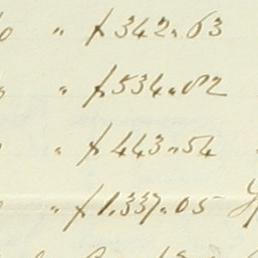 " f 342.63
" f 534.02
" f 443.54
" f 1.337.05